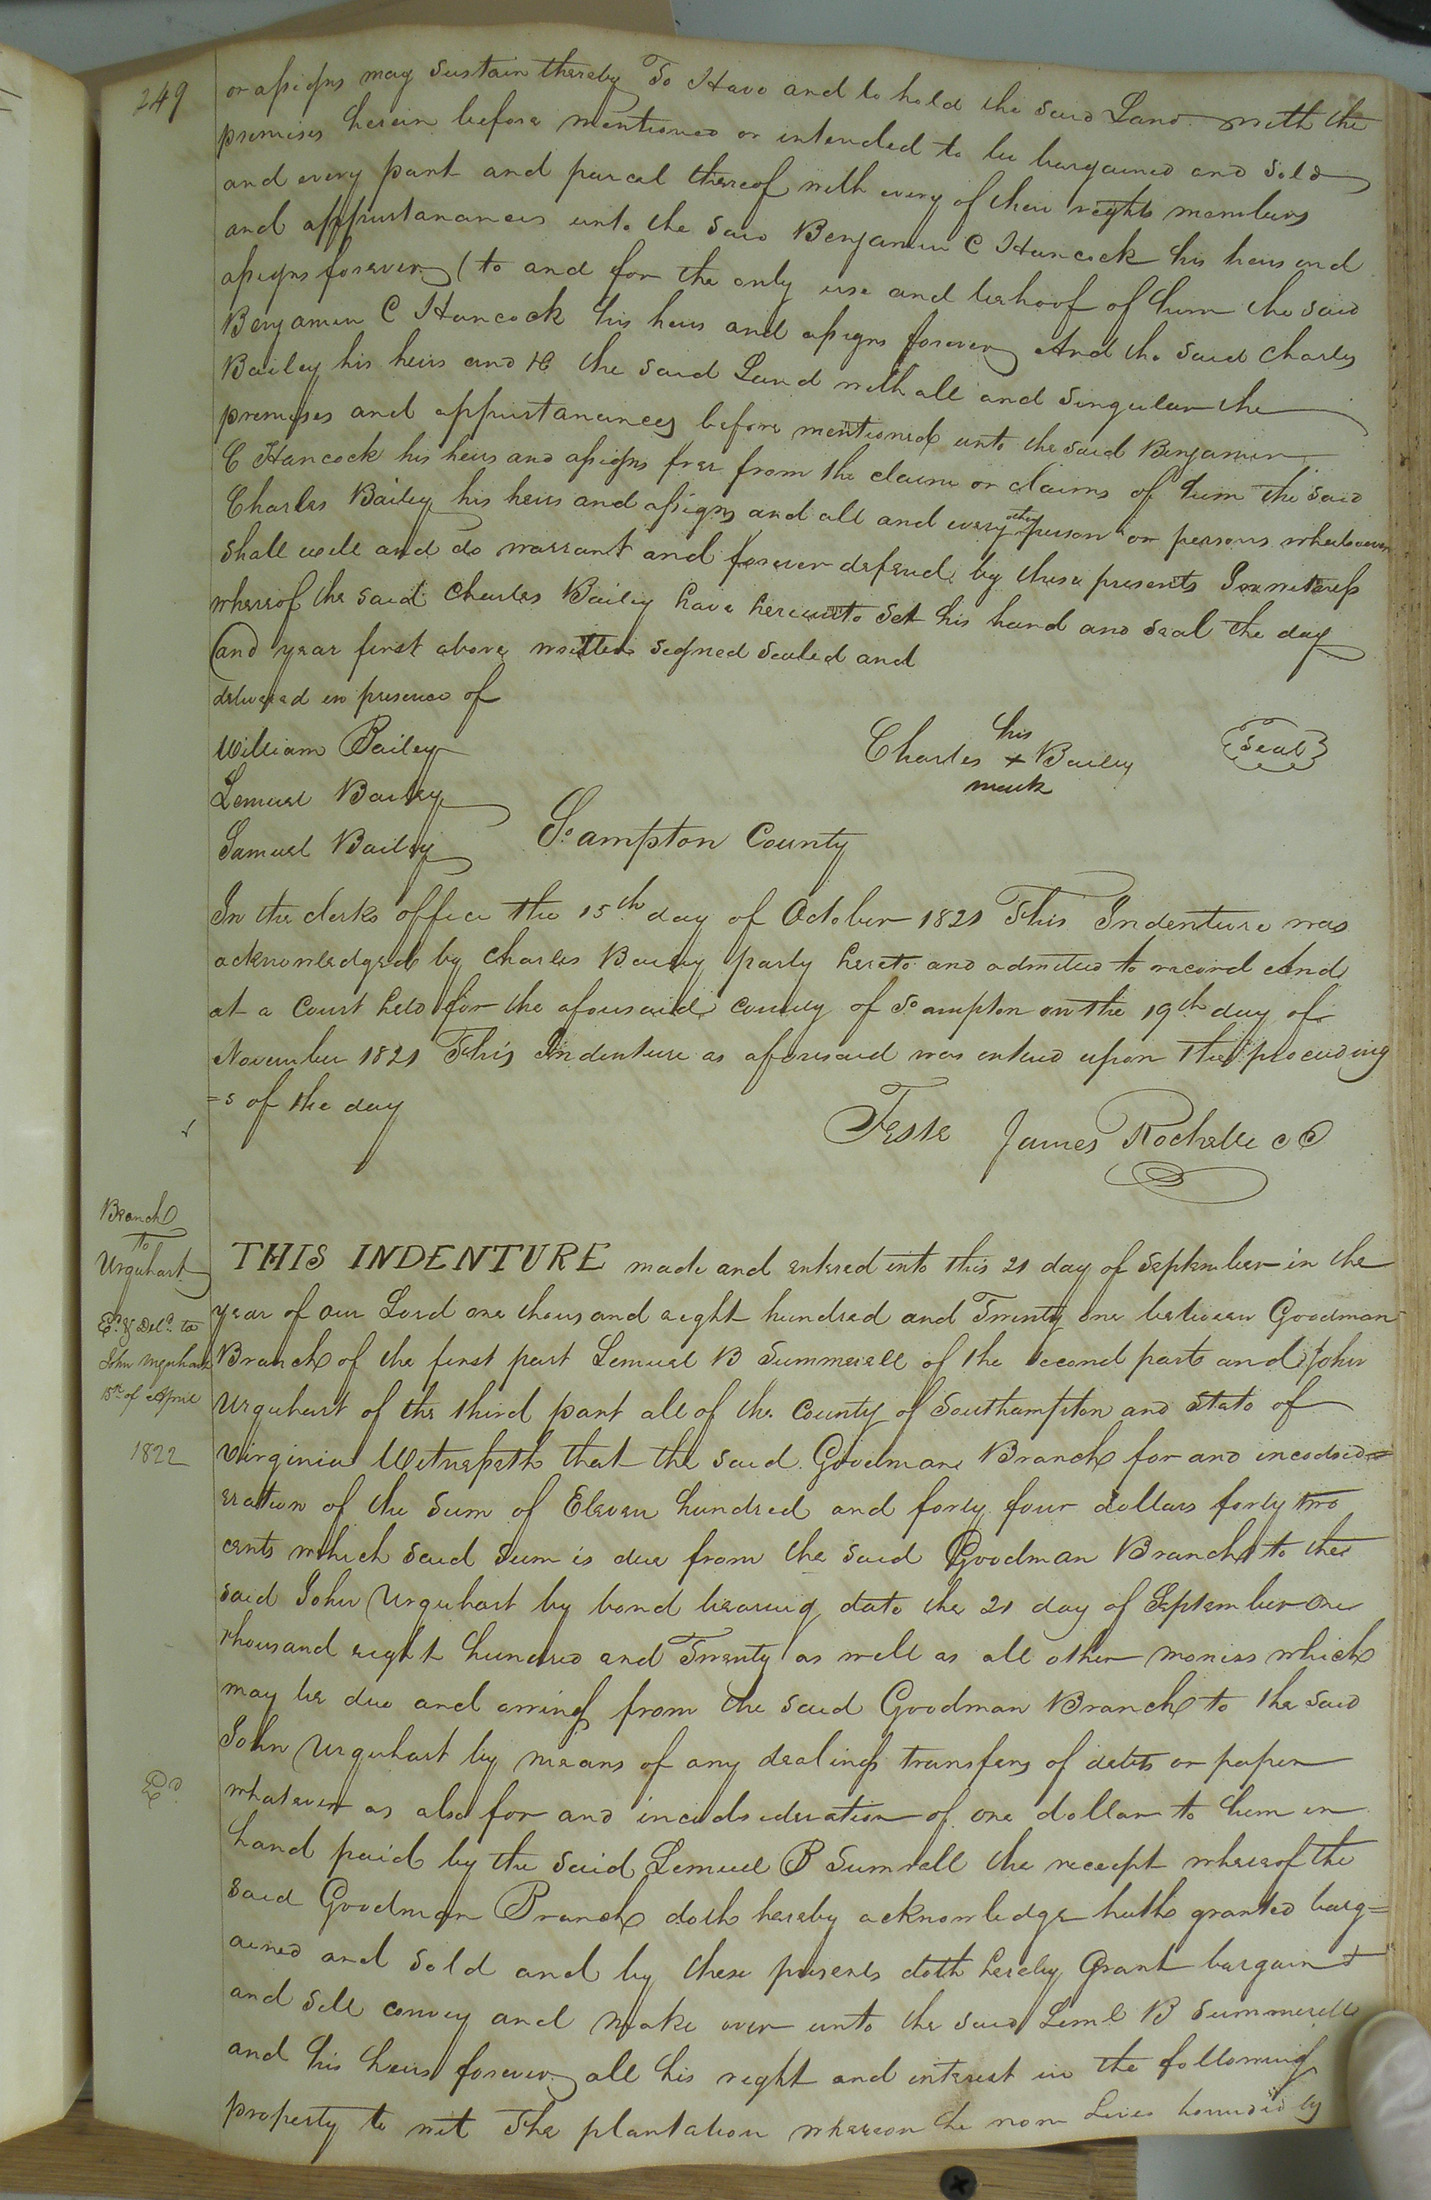 249
or assigns may sustain thereby To Have and to hold the said Land with the
premises herein before mentioned or intended to be bargained and sold
and every part and parcel thereof with every of their rights members
and appurtanances unto the said Benjamin C Hancock his heirs and
assigns forever (to and for the only use and behoof of him the said
Benjamin C Hancock his heirs and assigns forever And the said Charles
Bailey his heirs and &c the said Land with all and singular the
premises and appurtanances before mentioned unto the said Benjamin
C Hancock his heirs and assigns free from the claim or claims of him the said
Charles Bailey his heirs and assigns and all and every other person or persons whatsoever
shall will and do warrant and forever defend by these presents In witness
whereof the said Charles Bailey have hereunto set his hand and seal the day
and year first above written signed sealed and
delivered in presence of
William Bailey
Lemuel Bailey
Samuel Bailey
his
Charles + Bailey
mark
Seal
So.ampton County
In the clerks office the 15th day of October 1821 This Indenture was
acknowledged by Charles Bailey party hereto and admitted to record And
at a Court held for the aforesaid county of So.ampton on the 19th day of
November 1821 This Indenture as aforesaid was entered upon the proceeding
=s of the day
Teste James Rochelle CC
Branch
to
Urquhart
Ed. & Deld. to
John Urquhart
15th of April
1822
THIS INDENTURE made and entered into this 21 day of September in the
year of our Lord one thousand eight hundred and Twenty one between Goodman
Branch of the first part Lemuel B Summerell of the second part and John
Urquhart of the third part all of the County of Southampton and State of
Virginia Witnesseth that the said Goodman Branch for and in
eration of the sum of Eleven hundred and forty four dollars forty two
cents which said sum is due from the said Goodman Branch to the
said John Urquhart by bond bearing date the 21 day of September One
thousand eight hundred and Twenty as well as all other monies which
may be due and owing from the said Goodman Branch to the said
John Urquhart by means of any dealings transfers of debts or paper
whatever as also for and in of one dollar to him in
hand paid by the said Lemuel B Sumrell the receipt whereof the
said Goodman Branch doth hereby acknowledge hath granted barg=
ained and sold and by these presents doth hereby Grant bargain
and sell convey and make over unto the said Leml B Summerell
and his heirs forever all his right and interest in the following
property to wit The plantation whereon he now lives bounded by
Ed.